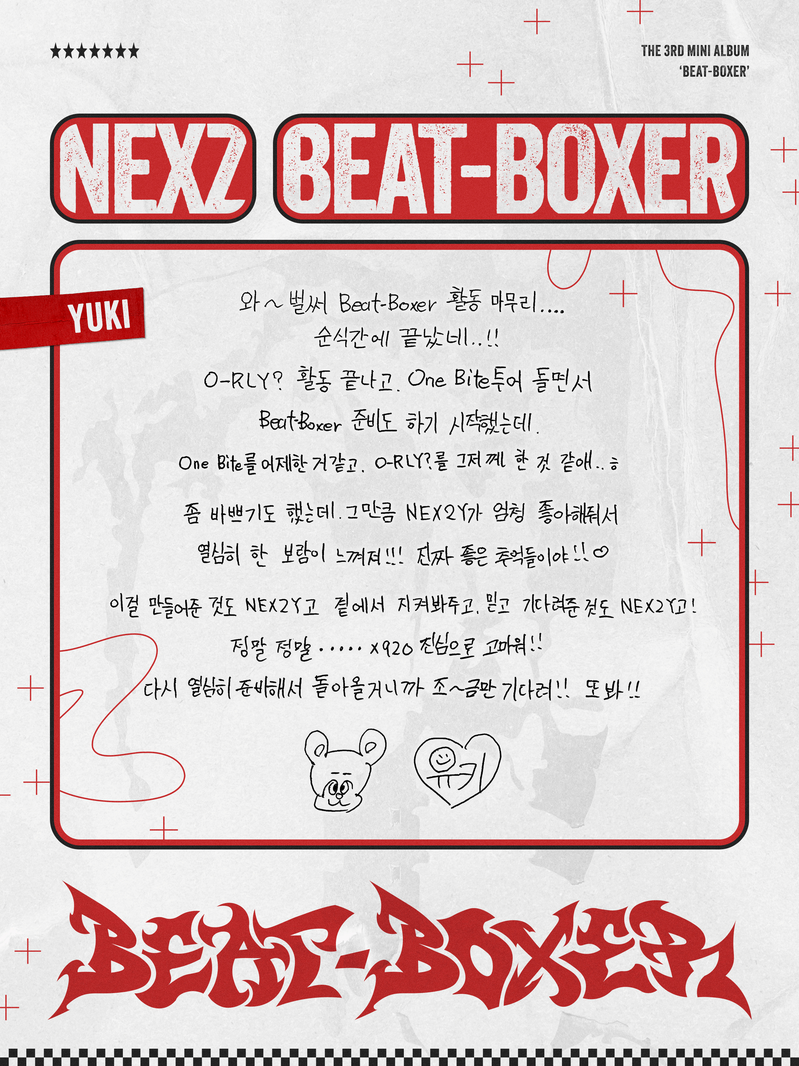 ★★★★★★★
THE 3RD MINI ALBUM
‘BEAT-BOXER’
NEXZ BEAT-BOXER
YUKI
와~ 벌써 Beat-Boxer 활동 마무리....
순식간에 끝났네..!!
O-RLY? 활동 끝나고. One Bite투어 돌면서
Beat-Boxer 준비도 하기 시작했는데.
One Bite를 어제한거같고. O-RLY?를 그저께 한 것 같애..ㅎ
좀 바쁘기도 했는데.그만큼 NEX2Y가 엄청 좋아해줘서
열심히 한 보람이 느껴져!!! 진짜 좋은 추억들이야!!♡
이걸 만들어준 것도 NEX2Y고 곁에서 지켜봐주고.믿고 기다려준것도 NEX2Y고!
정말 정말 ····· x920 진심으로 고마워!!
다시 열심히 준비해서 돌아올거니까 조~금만 기다려!! 또 봐!!
유키
BEAT-BOXER